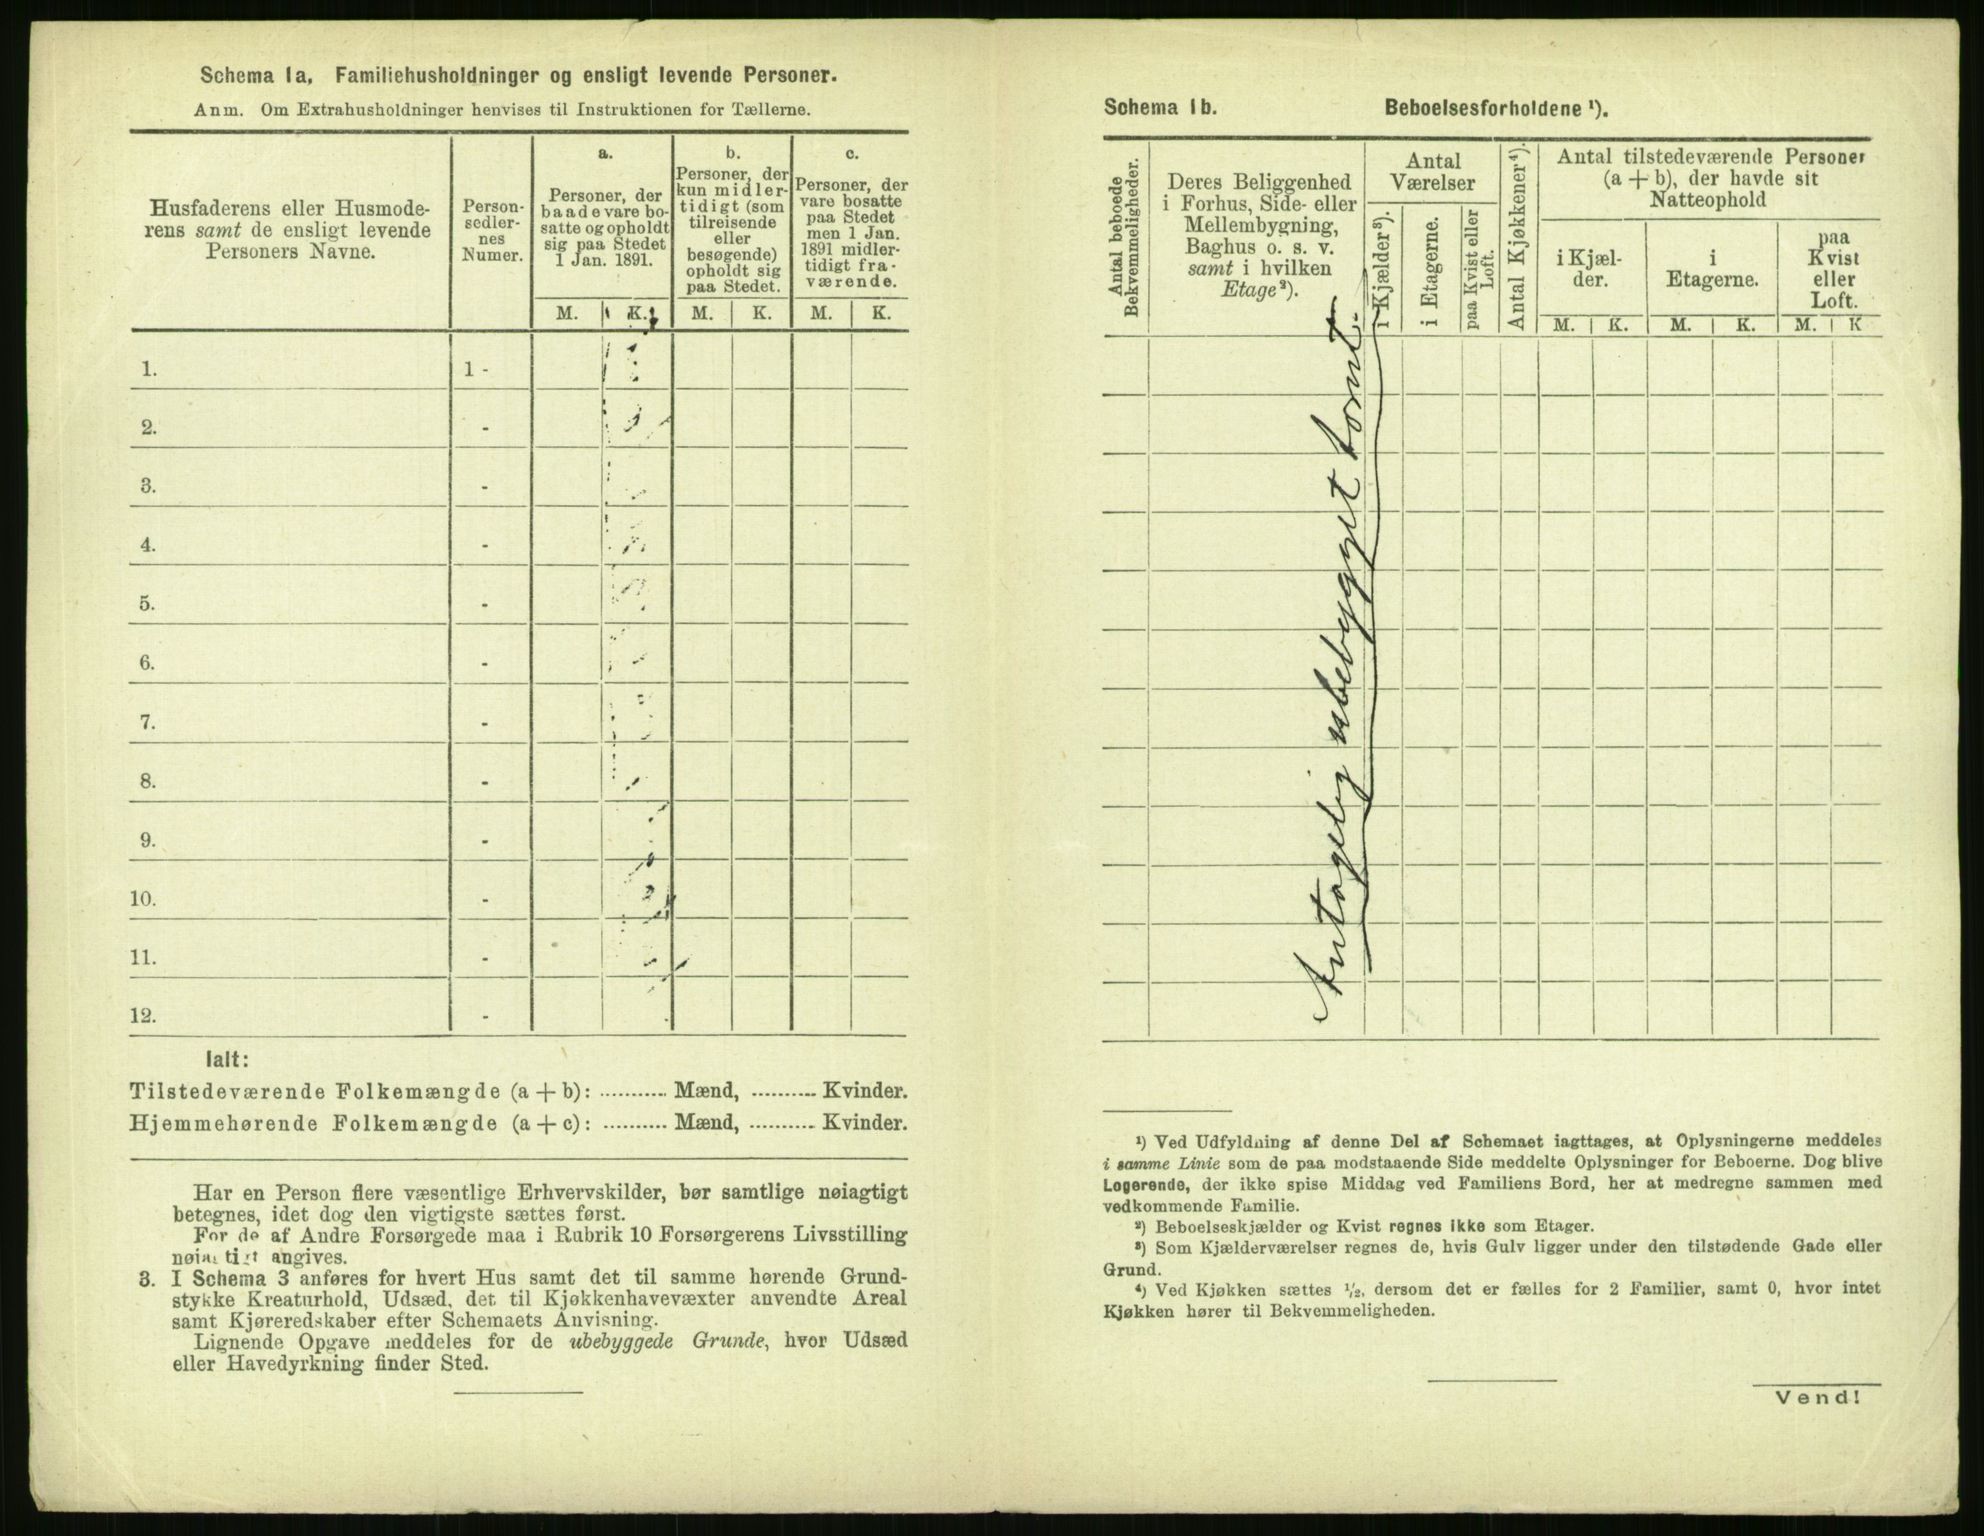 Schema 1a, Familiehusholdninger og ensligt levende Personer.
Anm. Om Extrahusholdninger henvises til Instruktionen for Tællerne.
Husfaderens eller Husmode-
rens samt de ensligt levende
Personers Navne.
Person-
sedler-
nes
Numer.
a.
Personer, der
baade vare bo-
satte og opholdt
sig paa Stedet
1 Jan. 1891.
b.
Personer, der
kun midler-
tidigt (som
tilreisende
eller
besøgende)
opholdt sig
paa Stedet.
c.
Personer, der
vare bosatte
paa Stedet
men 1 Jan.
1891 midler-
tidigt fra-
værende.
M. K. M. K. M. K.
1. 1 -
2. -
3. -
4. -
5. -
6. -
7. -
8. -
9. -
10. -
11. -
12. -
Ialt:
Tilstedeværende Folkemængde (a + b): ........... Mænd, ........... Kvinder.
Hjemmehørende Folkemængde (a + c): ........... Mænd, ........... Kvinder.
Har en Person flere væsentlige Erhvervskilder, bør samtlige nøiagtigt
betegnes, idet dog den vigtigste sættes først.
For de af Andre Forsørgede maa i Rubrik 10 Forsørgerens Livsstilling
nøiagtigt angives.
3. I Schema 3 anføres for hvert Hus samt det til samme hørende Grund-
stykke Kreaturhold, Udsæd, det til Kjøkkenhavevæxter anvendte Areal
samt Kjøreredskaber efter Schemaets Anvisning.
Lignende Opgave meddeles for de ubebyggede Grunde, hvor Udsæd
eller Havedyrkning finder Sted.
Schema 1b. Beboelsesforholdene ¹).
Antal beboede
Bekvemmeligheder.
Deres Beliggenhed
i Forhus, Side- eller
Mellembygning,
Baghus o. s. v.
samt i hvilken
Etage²).
Antal
Værelser
i Kjælder³).
i Etagerne.
paa Kvist eller
Loft.
Antal Kjøkkener⁴).
Antal tilstedeværende Personer
(a + b), der havde sit
Natteophold
i Kjæl-
der.
i
Etagerne.
paa
Kvist
eller
Loft.
M. K. M. K. M. K
Antagelig ubebygget tomt.
¹) Ved Udfyldning af denne Del af Schemaet iagttages, at Oplysningerne meddeles
i samme Linie som de paa modstaaende Side meddelte Oplysninger for Beboerne. Dog blive
Logerende, der ikke spise Middag ved Familiens Bord, her at medregne sammen med
vedkommende Familie.
²) Beboelseskjælder og Kvist regnes ikke som Etager.
³) Som Kjælderværelser regnes de, hvis Gulv ligger under den tilstødende Gade eller
Grund.
⁴) Ved Kjøkken sættes ½, dersom det er fælles for 2 Familier, samt 0, hvor intet
Kjøkken hører til Bekvemmeligheden.
Vend!